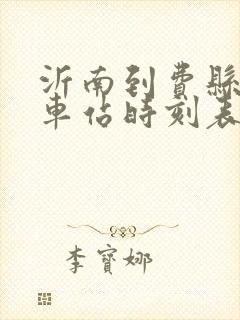 沂南到費縣
車站時刻表
李寶娜